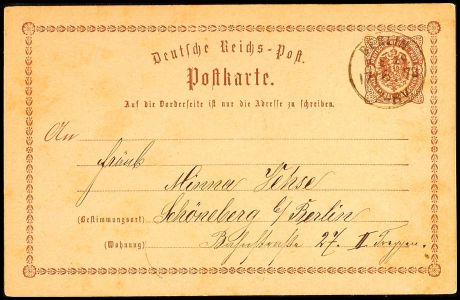 Deutsche Reichs-Post.
Postkarte.
Auf die Vorderseite ist nur die Adresse zu schreiben.
BERLIN
An
Fräul
Minna Jehse
(Bestimmungsort) Schöneberg b/Berlin
(Wohnung) Bahnstraße 27. II Treppen.